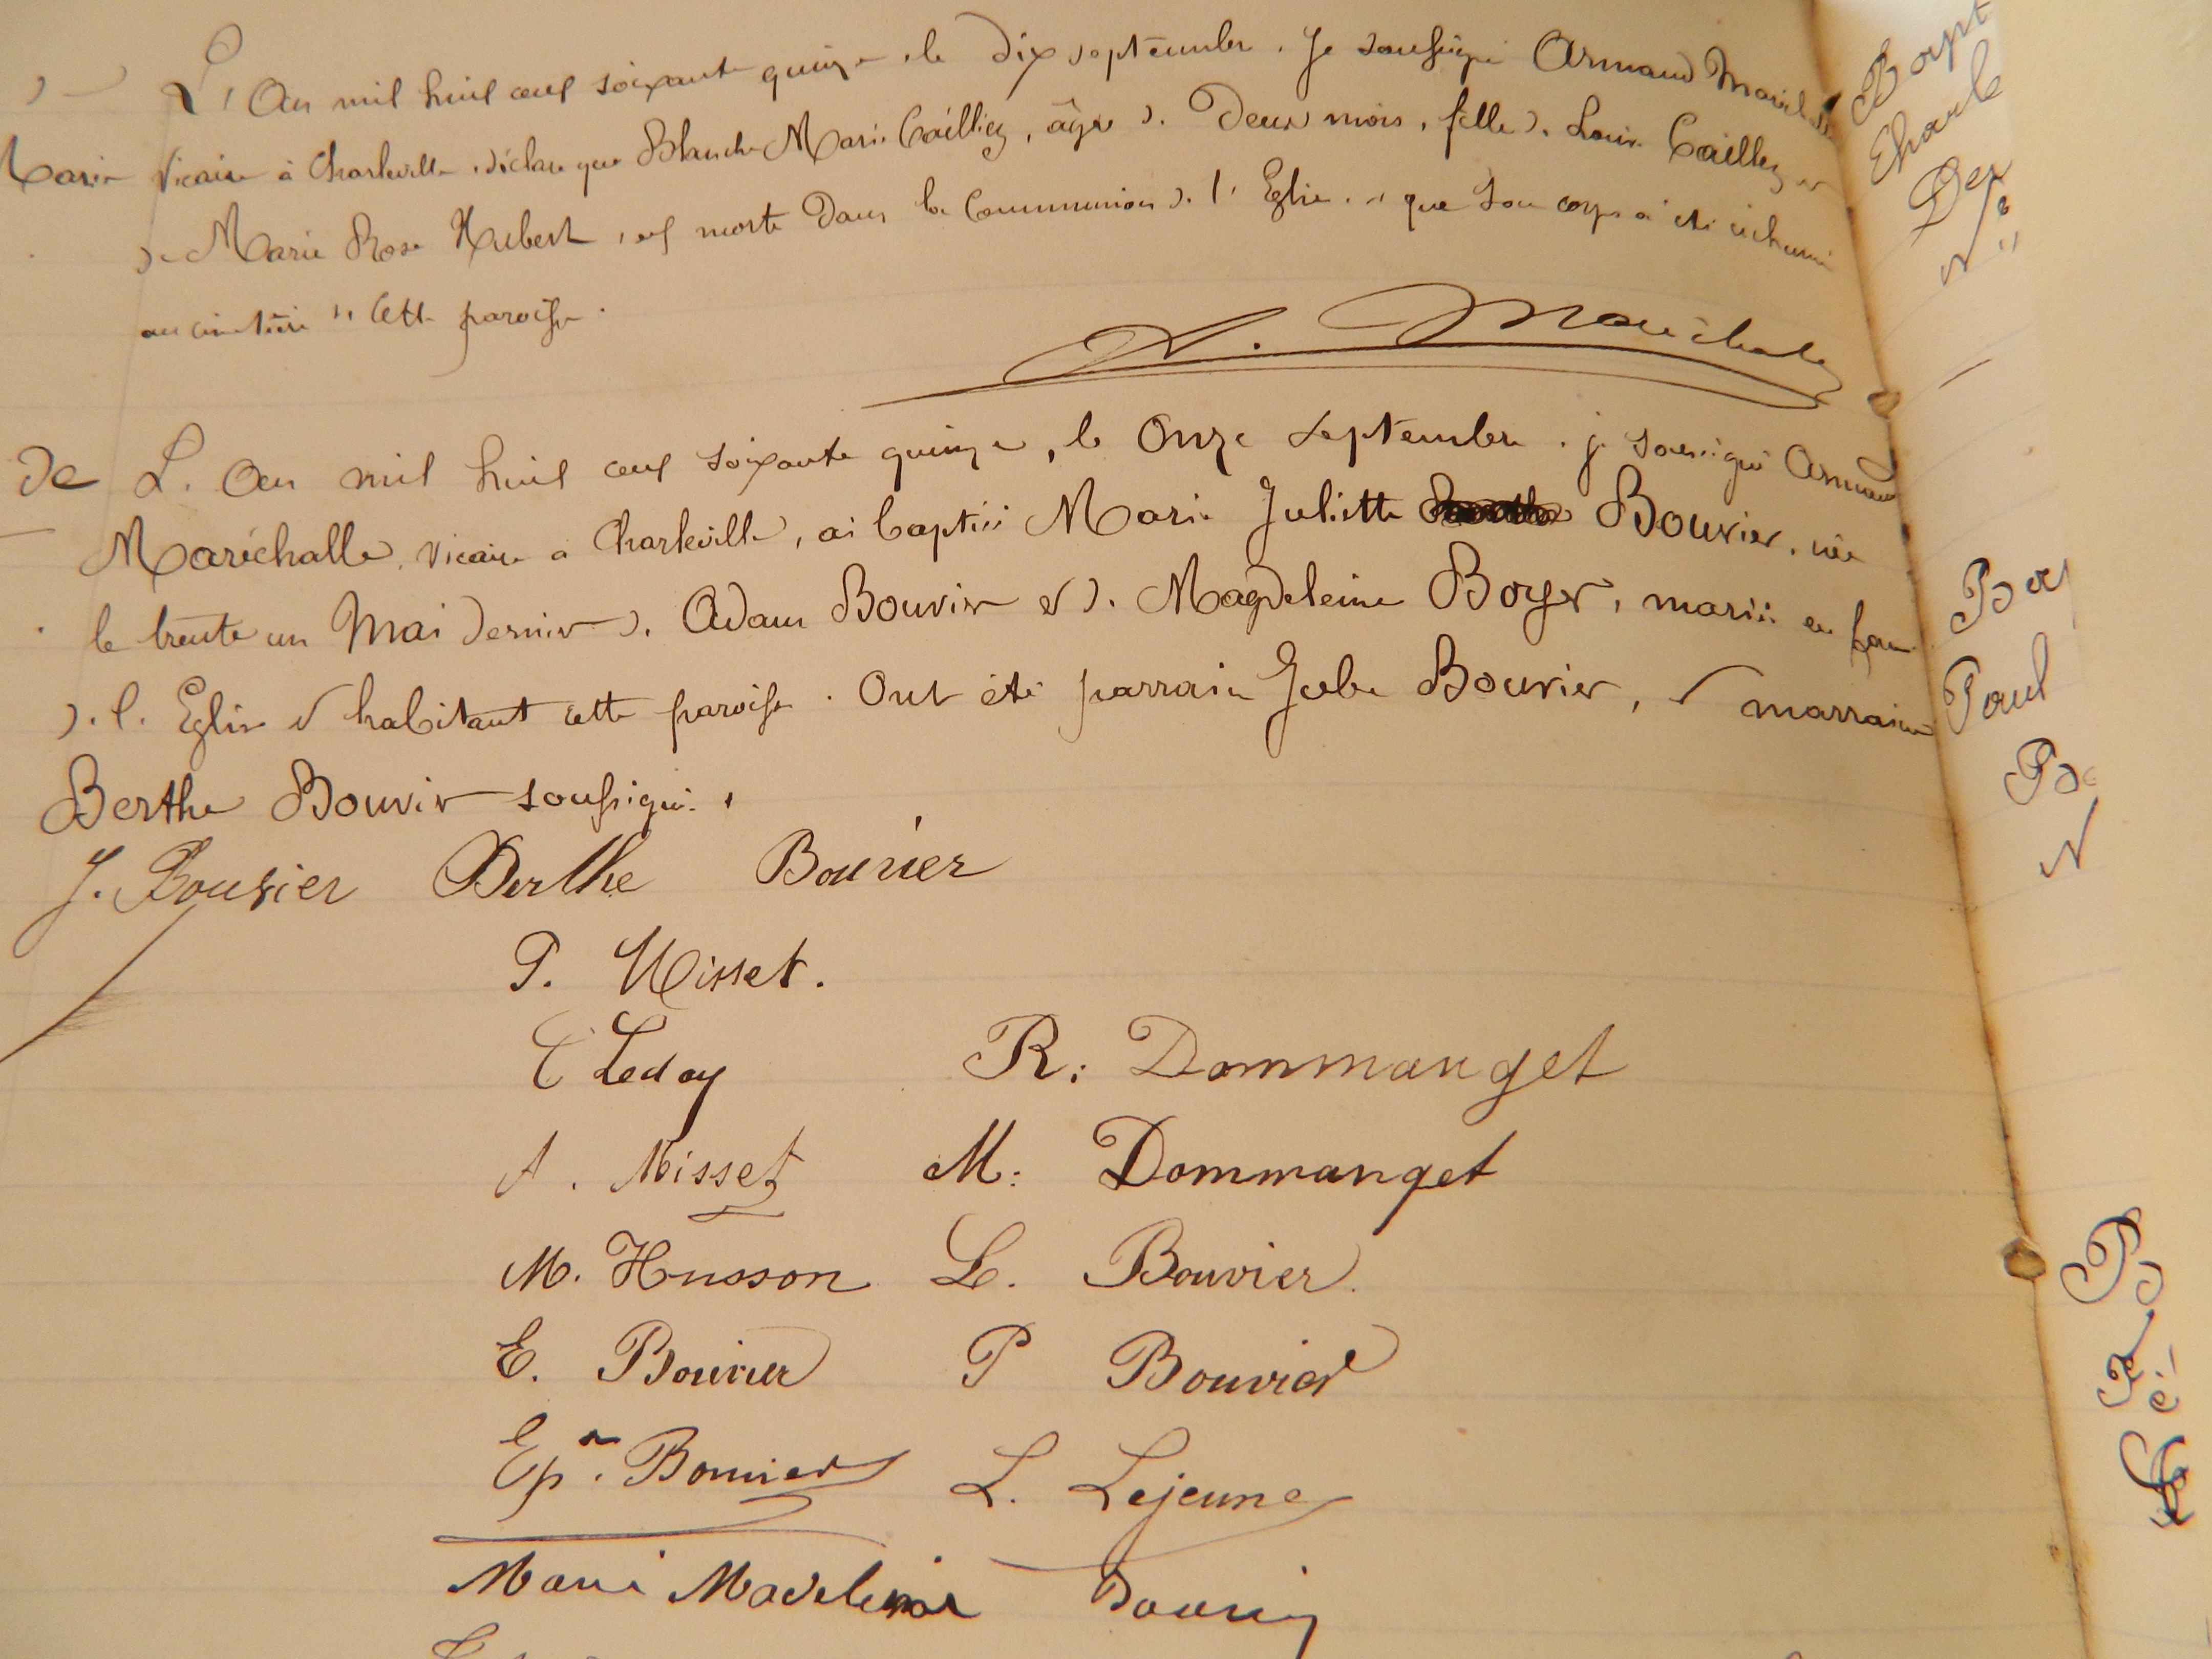 L'An mil huit cent soixante quinze, le Dix septembre, Je soussigné Armand
Marie Vicaire à Charleville, déclare que Blanche Marie Cailliez, âgée de Deux mois, fille de Louis Cailliez et
de Marie Rose Hubert, est morte Dans la Communion de l'Eglise, et que son corps a été inhumé
au cimetière de Cette paroisse.
A. Maréchalle
De L'An mil huit cent soixante quinze, le Onze Septembre, je soussigné Armand
Maréchalle, Vicaire à Charleville, ai baptisé Marie Juliette Bouvier, née
le trente un Mai dernier de Adam Bouvier et de Magdeleine Boyer, mariés en face
de l'Eglise et habitant cette paroisse. Ont été parrain Jules Bouvier, et marraine
Berthe Bouvier soussignés.
J. Bouvier Berthe Bouvier
P. Misset.
C Leday R. Dommanget
A. Misset M. Dommanget
M. Husson L. Bouvier.
E. Bouvier P Bouvier
Ep. Bouvier L. Lejeune
Marie Madeleine
Bapt
Charle
Paul